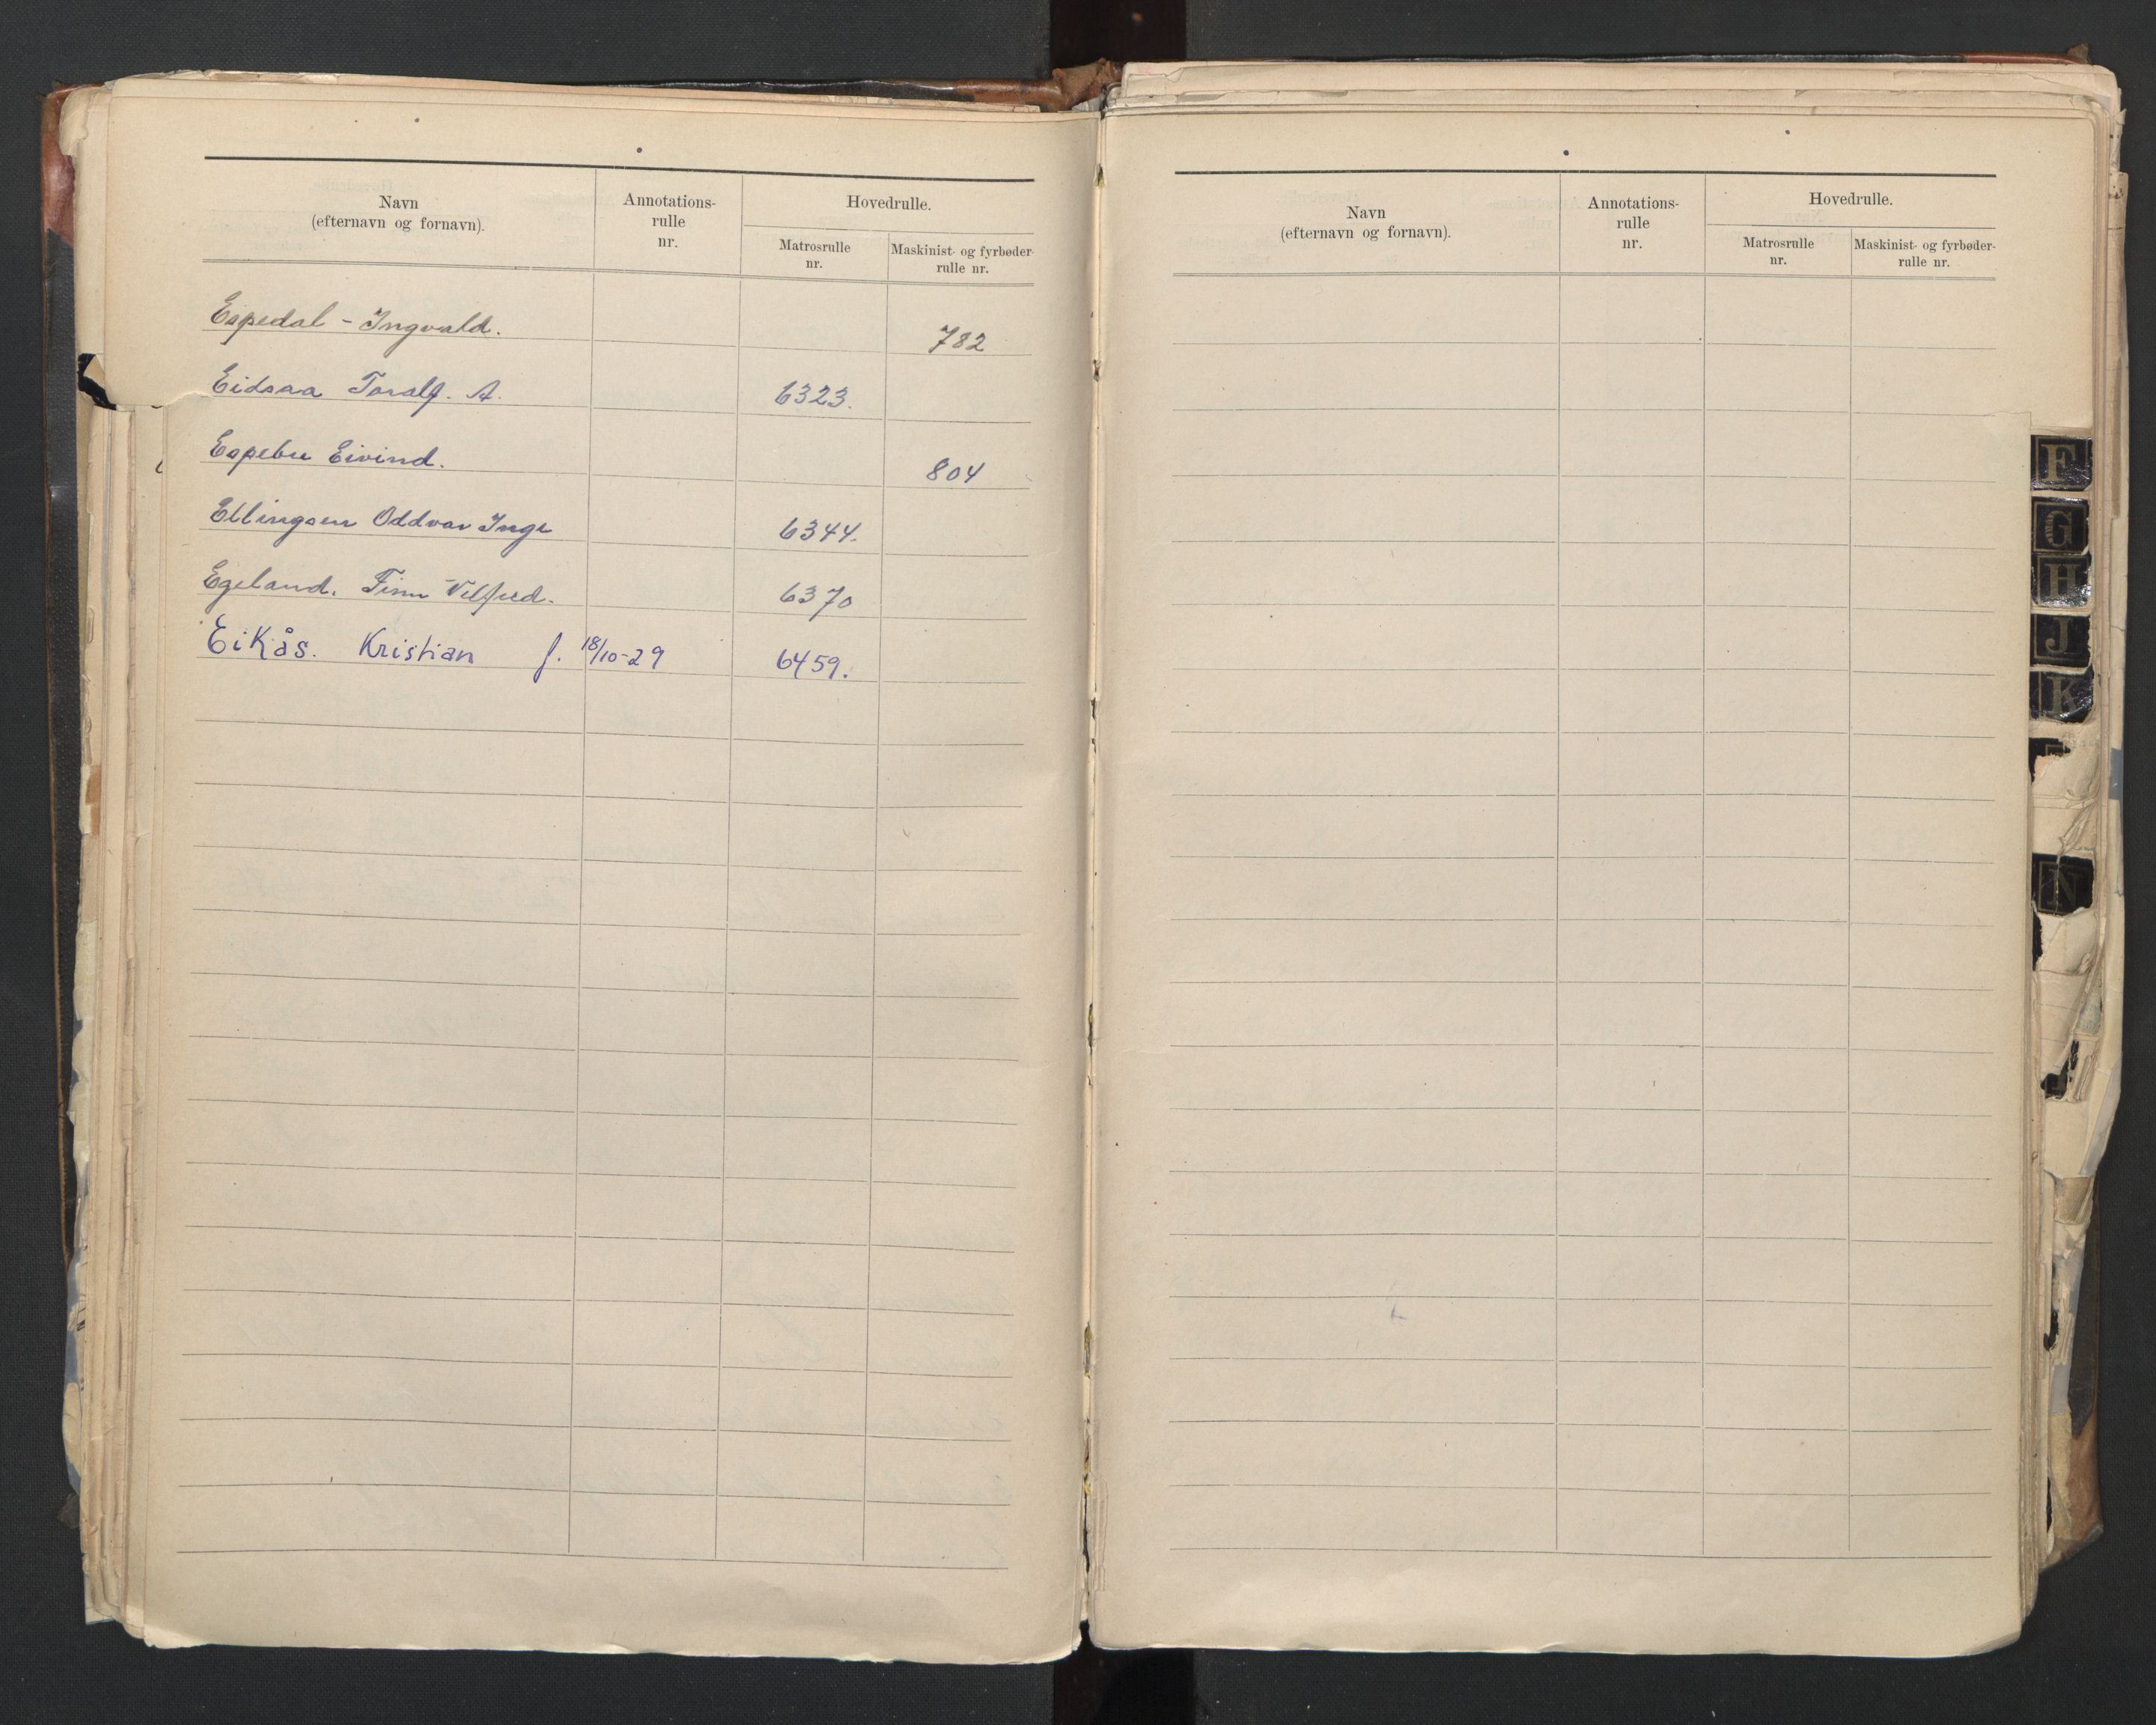 Navn
(efternavn og fornavn).
Annotations-
rulle
nr.
Hovedrulle.
Matrosrulle
nr.
Maskinist- og fyrbøder-
rulle nr.
Espedal - Ingvald. 782
Eidsaa Toralf. A. 6323.
Espebu Eivind. 804
Ellingsen Oddvar Inge 6344.
Egeland. Finn Vilfred. 6370
Eikås. Kristian f. 18/10-29 6459.
Navn
(efternavn og fornavn).
Annotations-
rulle
nr.
Hovedrulle.
Matrosrulle
nr.
Maskinist- og fyrbøder-
rulle nr.
F
G
H
J
K
N